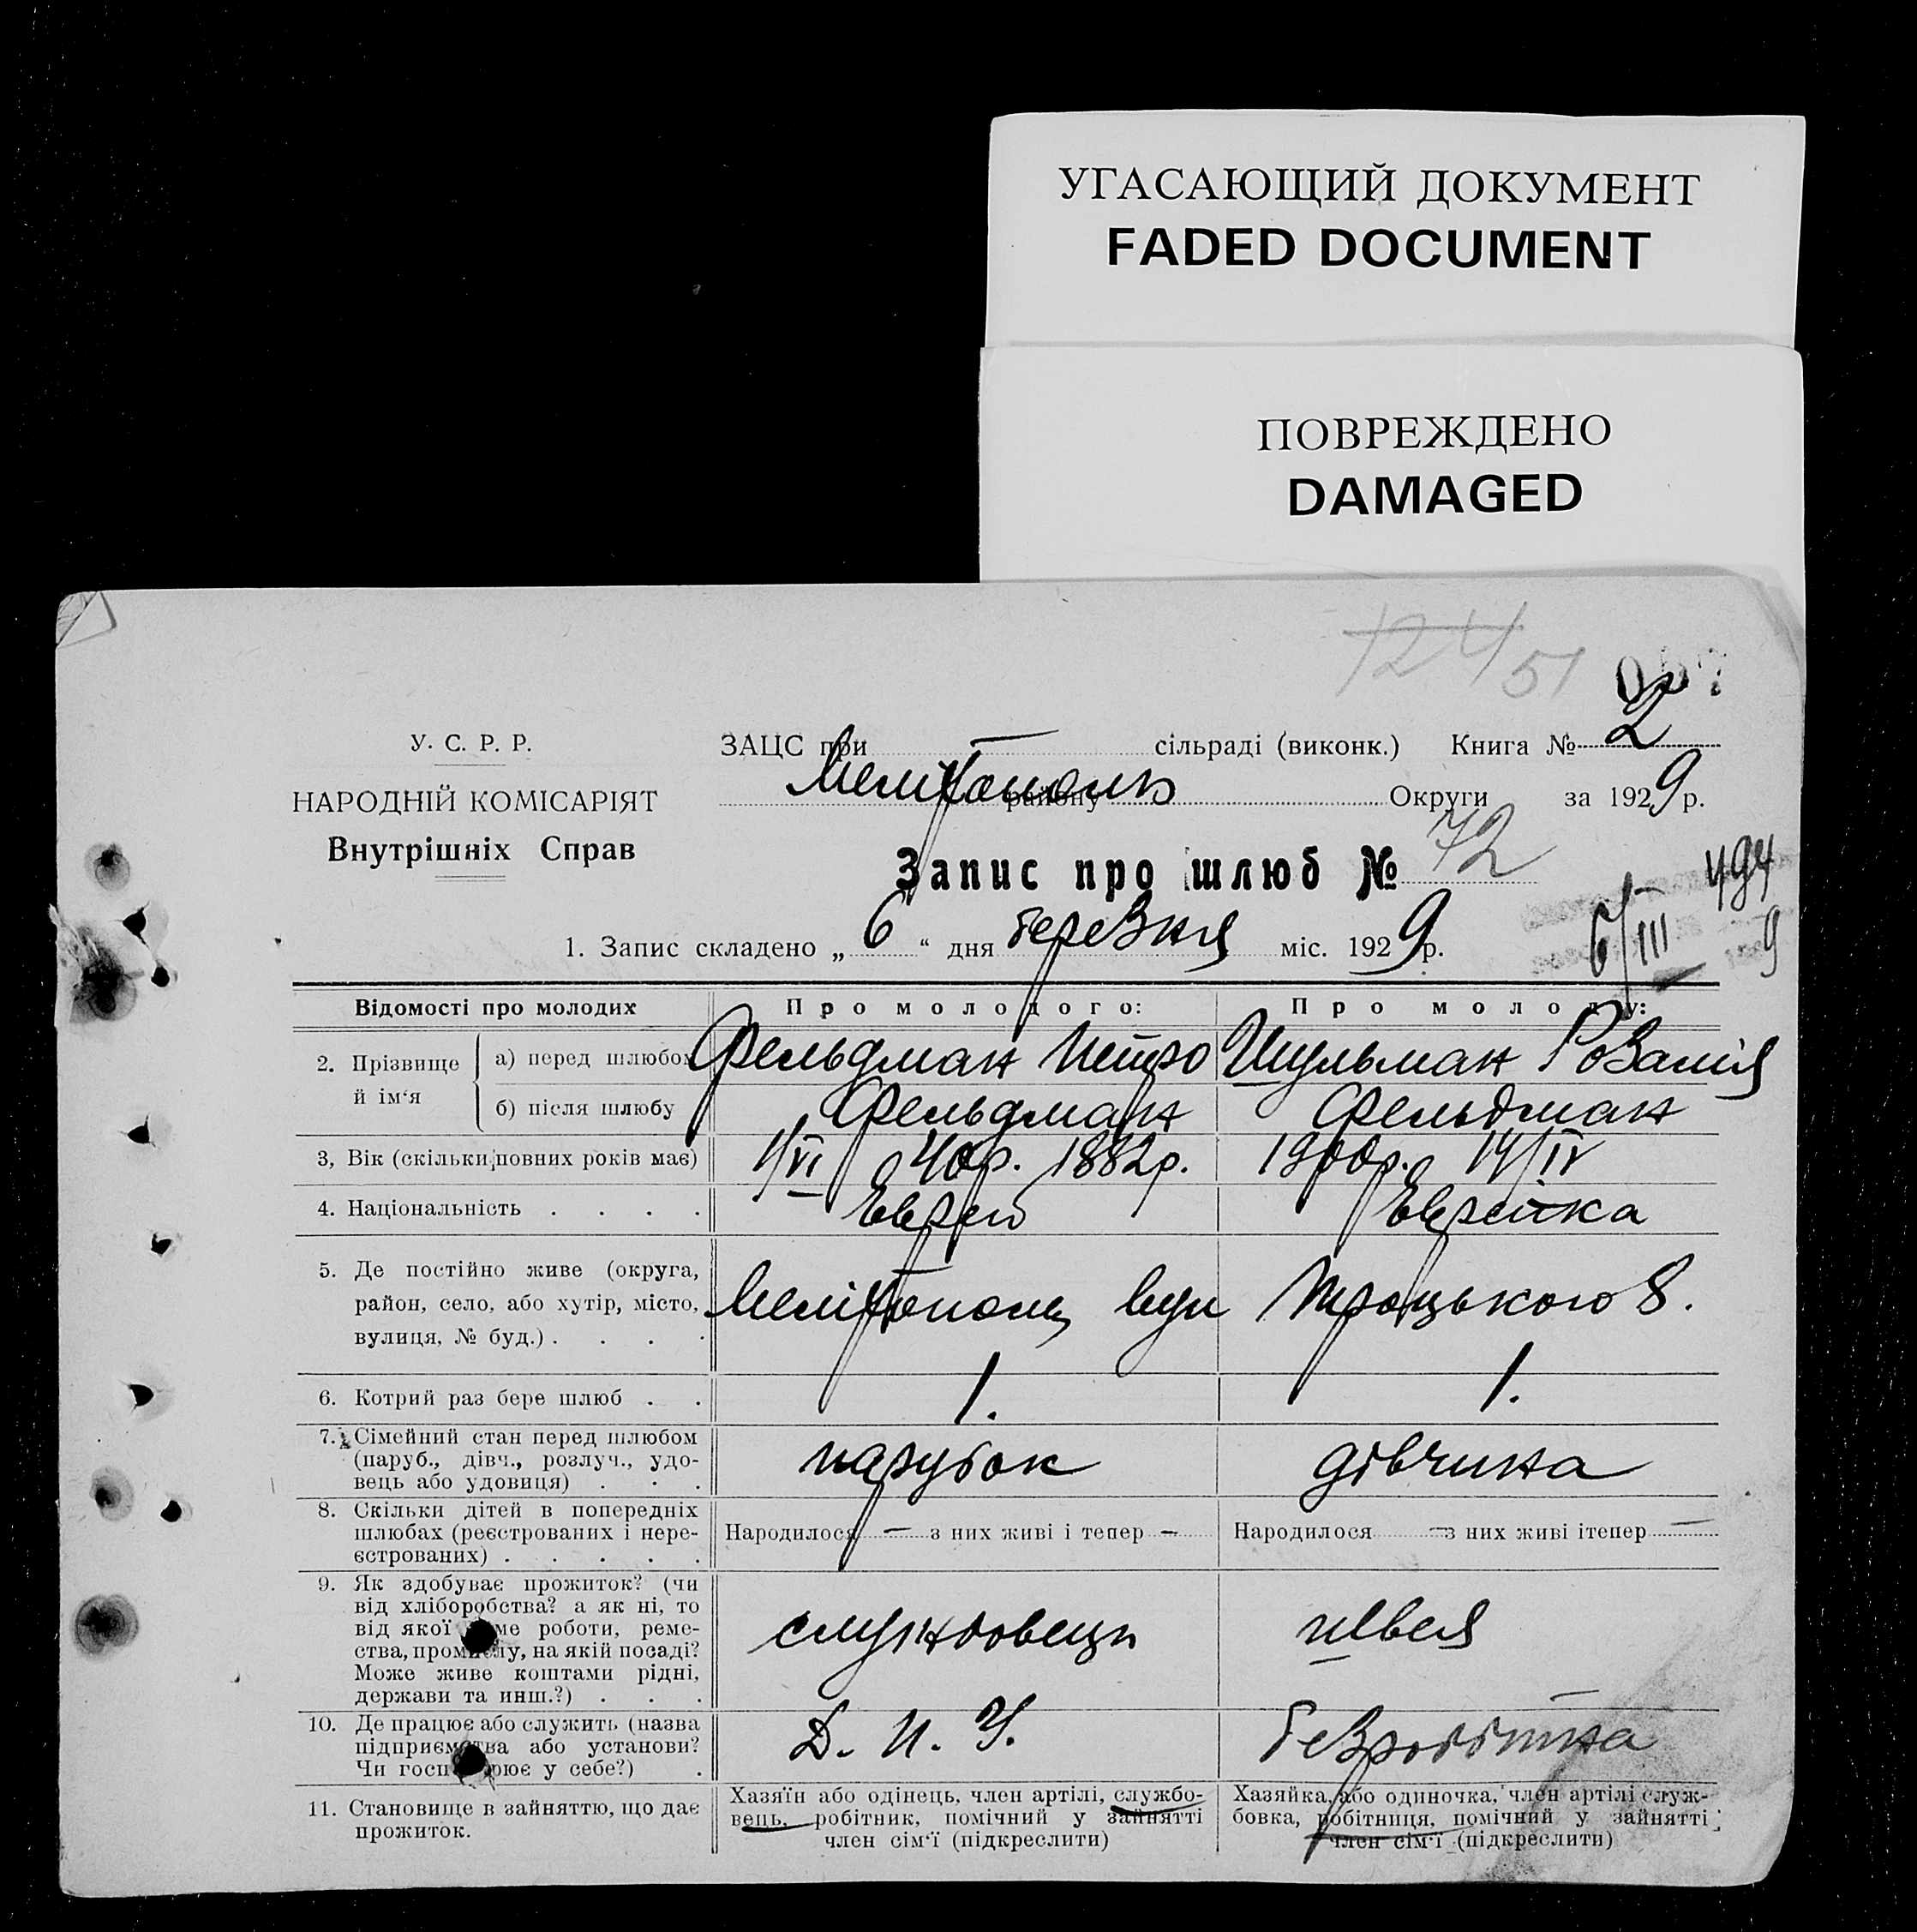 УГАСАЮЩИЙ ДОКУМЕНТ
FADED DOCUMENT
ПОВРЕЖДЕНО
DAMAGED
124 51
У. С. Р. Р.
НАРОДНІЙ КОМІСАРІЯТ
Внутрішніх Справ
ЗАЦС при — сільраді (виконк.) Книга № 2
Мелітополь району Округи за 1929 р.
Запис про шлюб № 72
494
6/III 9
1. Запис складено „ 6 “ дня березня міс. 1929 р.
Відомості про молодих Про молодого: Про молоду:
2. Прізвище й ім‘я
а) перед шлюбом Фельдман Петро Шульман Розалія
б) після шлюбу Фельдман Фельдман
3, Вік (скільки повних років має) 1/VI 1882р. 1900р. 14/IV
4. Національність . . . . Еврей Еврейка
5. Де постійно живе (округа,
район, село, або хутір, місто,
вулиця, № буд.) . . . .
Мелітополь вул Троцького 8.
6. Котрий раз бере шлюб . . 1. 1.
7. Сімейний стан перед шлюбом
(паруб., дівч., розлуч., удо-
вець або удовиця) . . .
парубок дівчина
8. Скільки дітей в попередніх
шлюбах (реєстрованих і нере-
єстрованих) . . . . .
Народилося — з них живі і тепер — Народилося — з них живі ітепер —
9. Як здобуває прожиток? (чи
від хліборобства? а як ні, то
від якої саме роботи, реме-
ства, промислу, на якій посаді?
Може живе коштами рідні,
держави та инш.?) . . .
службовець швея
10. Де працює або служить (назва
підприємства або установи?
Чи господарює у себе?) .
Д. П. У. безробітна
11. Становище в зайняттю, що дає
прожиток.
Хазяїн або одінець, член артілі, службо-
вець, робітник, помічний у зайнятті
член сім‘ї (підкреслити)
Хазяйка, або одиночка, член артілі служ-
бовка, робітниця, помічний у зайнятті
член сім‘ї (підкреслити)